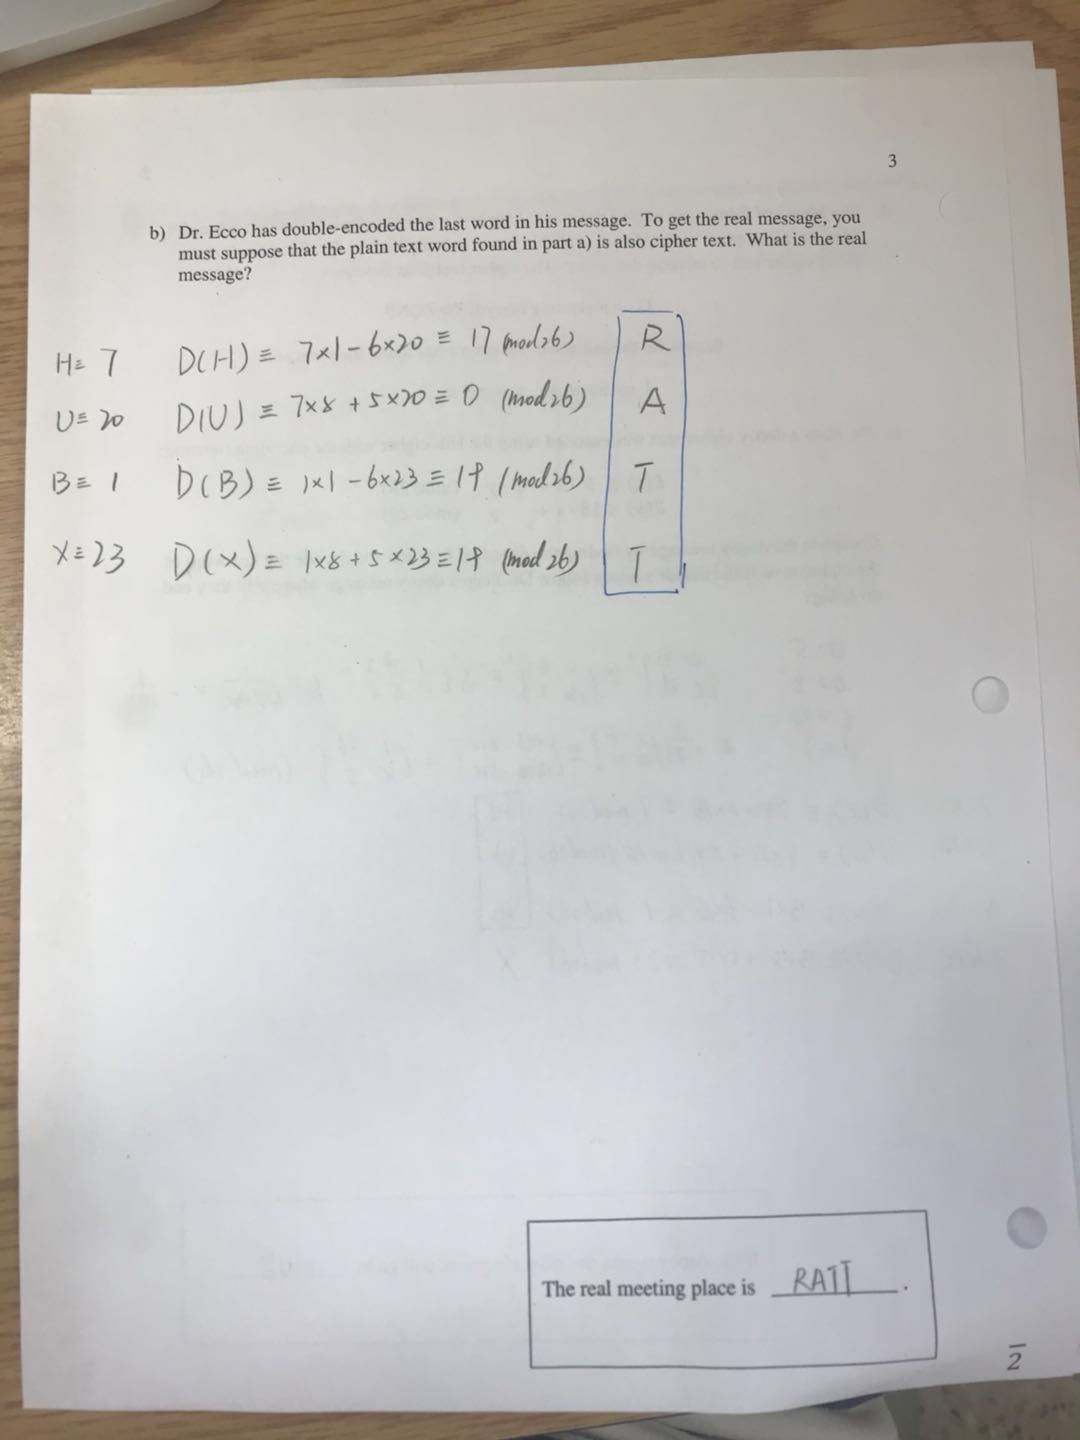 3
b) Dr. Ecco has double-encoded the last word in his message. To get the real message, you
must suppose that the plain text word found in part a) is also cipher text. What is the real
message?
H≡ 7 D(H) ≡ 7x1-6x20 ≡ 17 (mod26) R
U≡ 20 D(U) ≡ 7x8 + 5x20 ≡ 0 (mod26) A
B≡ 1 D(B) ≡ 1x1 -6x23 ≡ 19 (mod26) T
X≡23 D(X) ≡ 1x8 + 5x23 ≡ 19 (mod 26) T
The real meeting place is RATT.
2